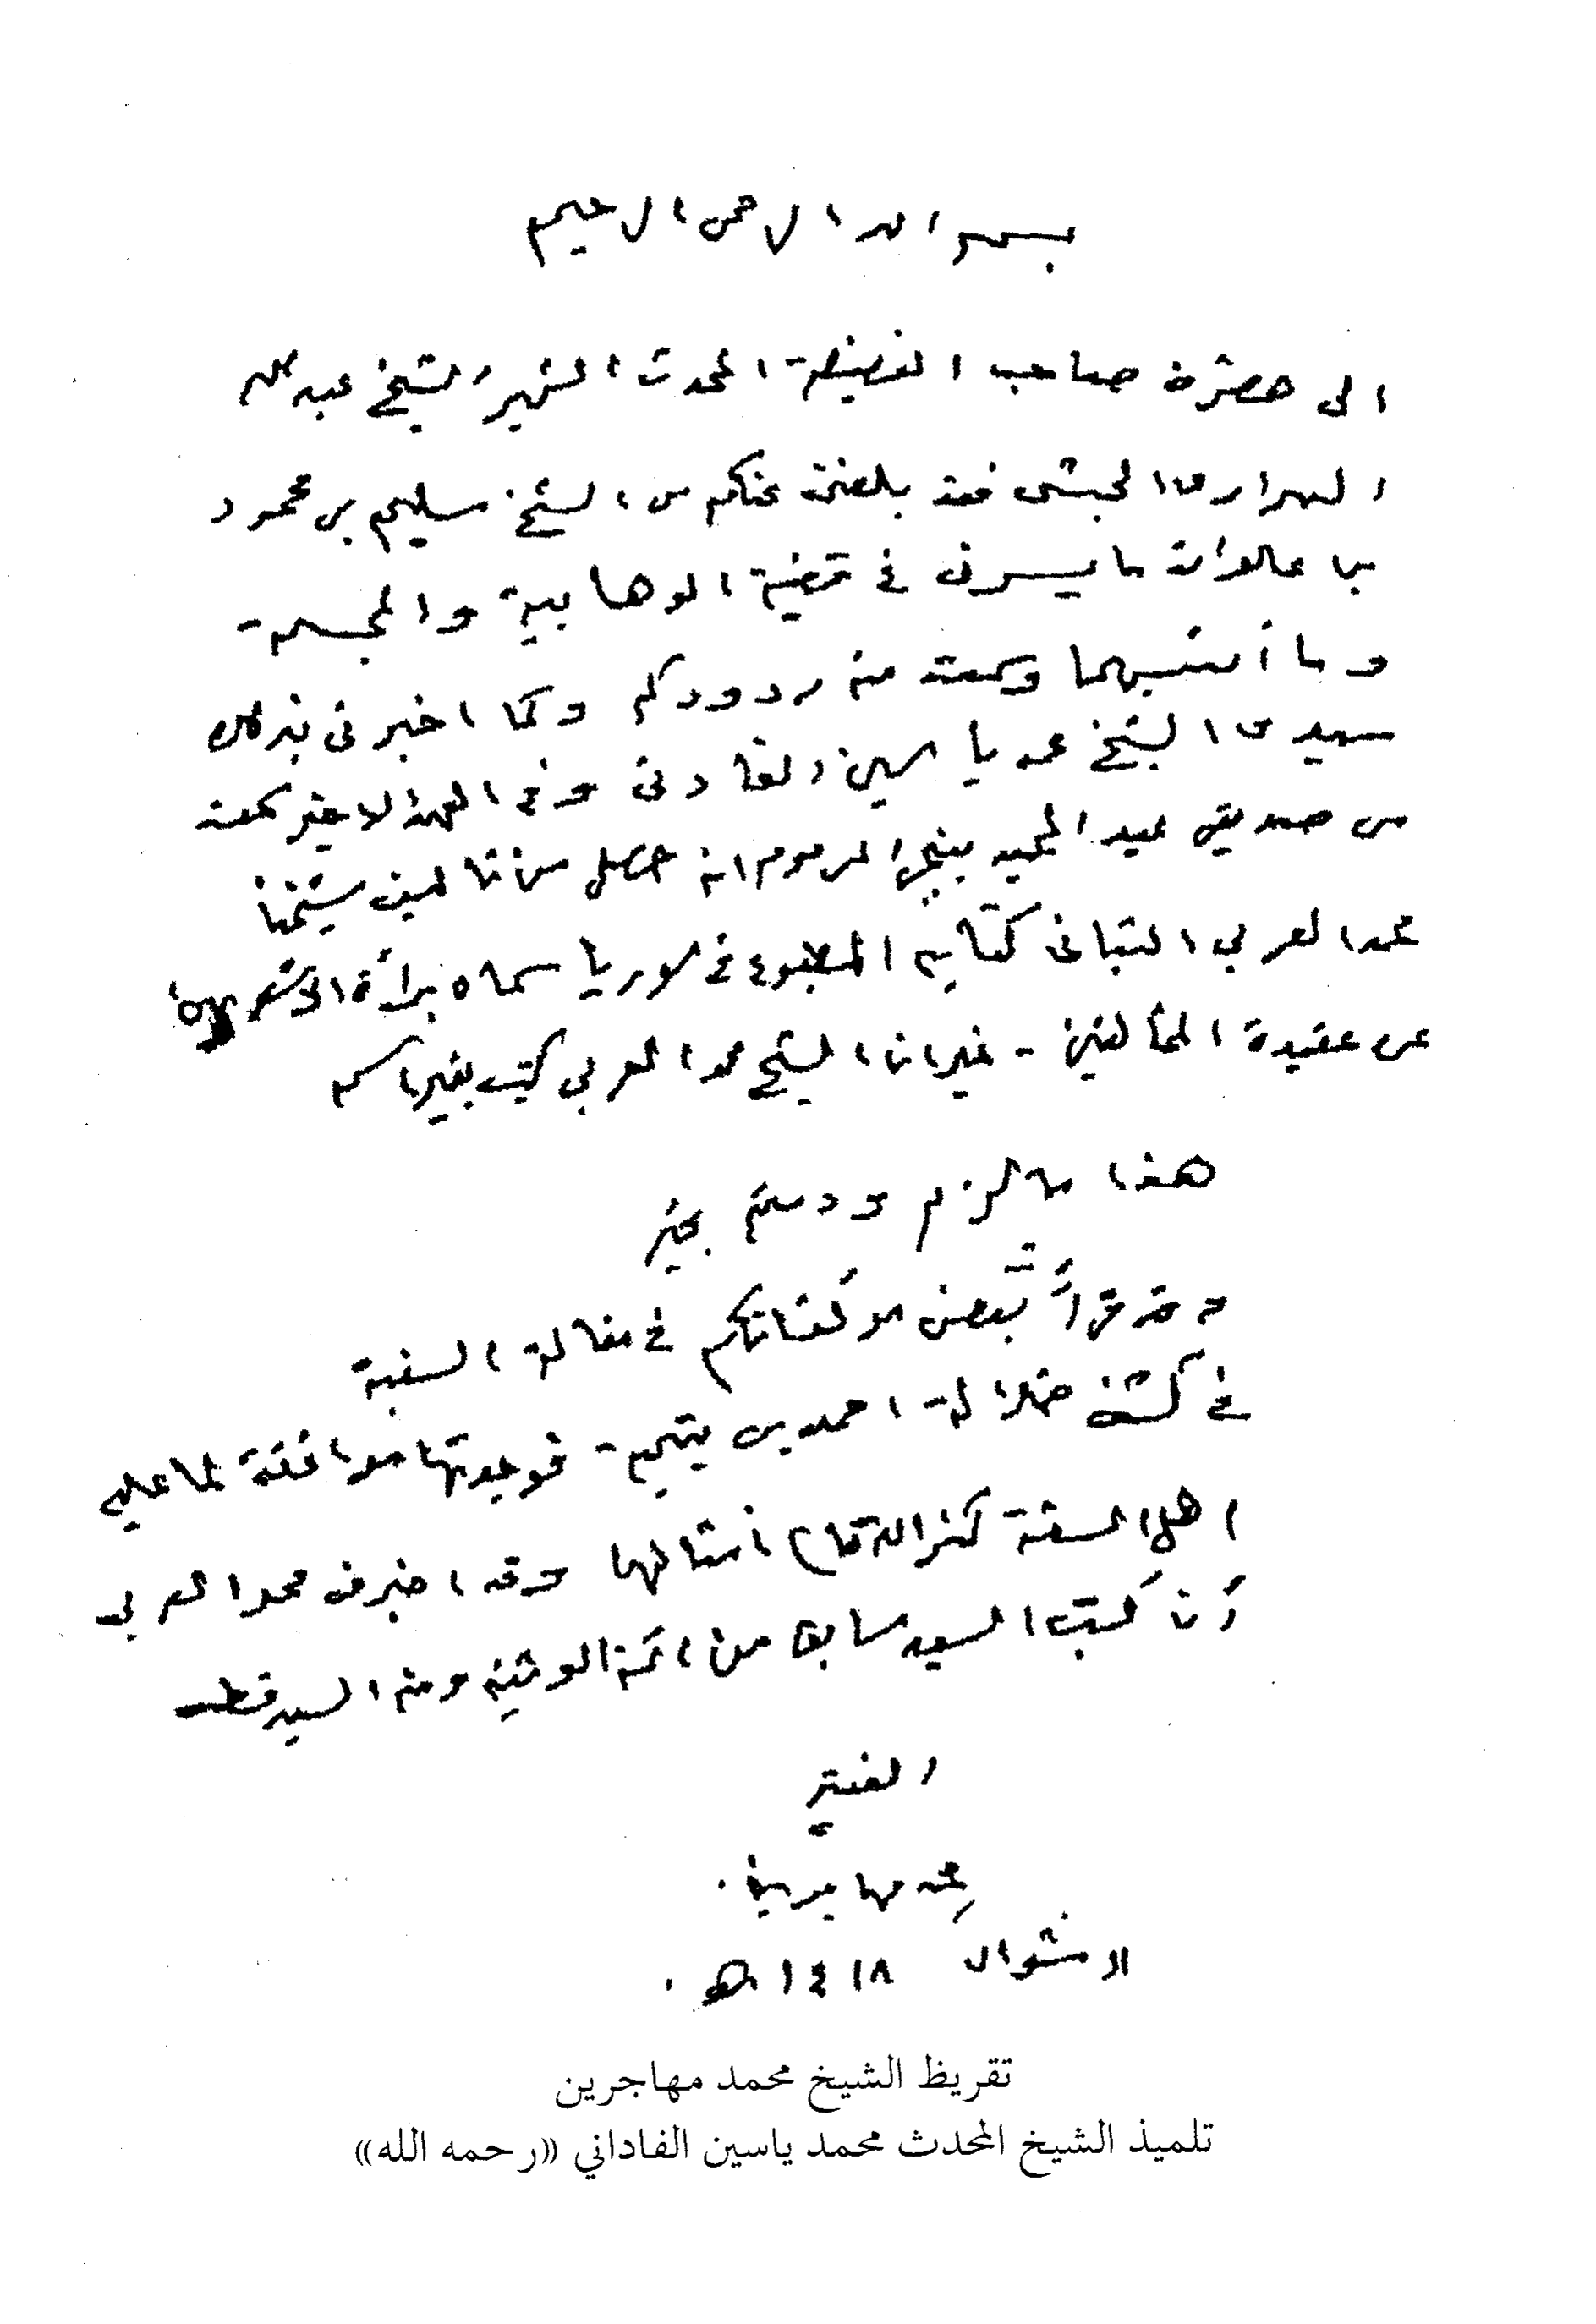 بسم الله الرحمن الرحيم
الى حضرة صاحب الفضيلة المحدث الشهير الشيخ عبد الله
الهرارى الحبشى فقد بلغنى عنكم من الشيخ سليم بن محمود
با علوان ما يسرنى في قضية الوهابية والمجسمة
وما أشبههما وسمعت منه ردودكم وكما اخبرنى بذلك
سيدى الشيخ محمد ياسين الفادنى وفى العهد الاخير سمعت
من صديقى عبد المجيد المرحوم انه حصل من تأليف شيخنا
محمد العربي التبانى كتابه المطبوع فى سوريا سماه براءة الاشعريين
عن عقيدة المخالفين - غير ان الشيخ محمد العربي كتب بغير اسمه
هذا ما لزم ودمتم بخير
وقد قرأت بعض مؤلفاتكم في مقالة السنية
في كشف ضلالة احمد بن تيمية فوجدتها موافقة لما عليه
اهل السنة كثر الله تعالى أمثالها وقد اخبرنى محمد العربي
أن كتب السيد سابق من ائمة الوثنية ومنه السيد قطب
الفقير
محمد مهاجرين
١١ شوال ١٤١٨ هـ
تقريظ الشيخ محمد مهاجرين
تلميذ الشيخ المحدث محمد ياسين الفاداني «رحمه الله»